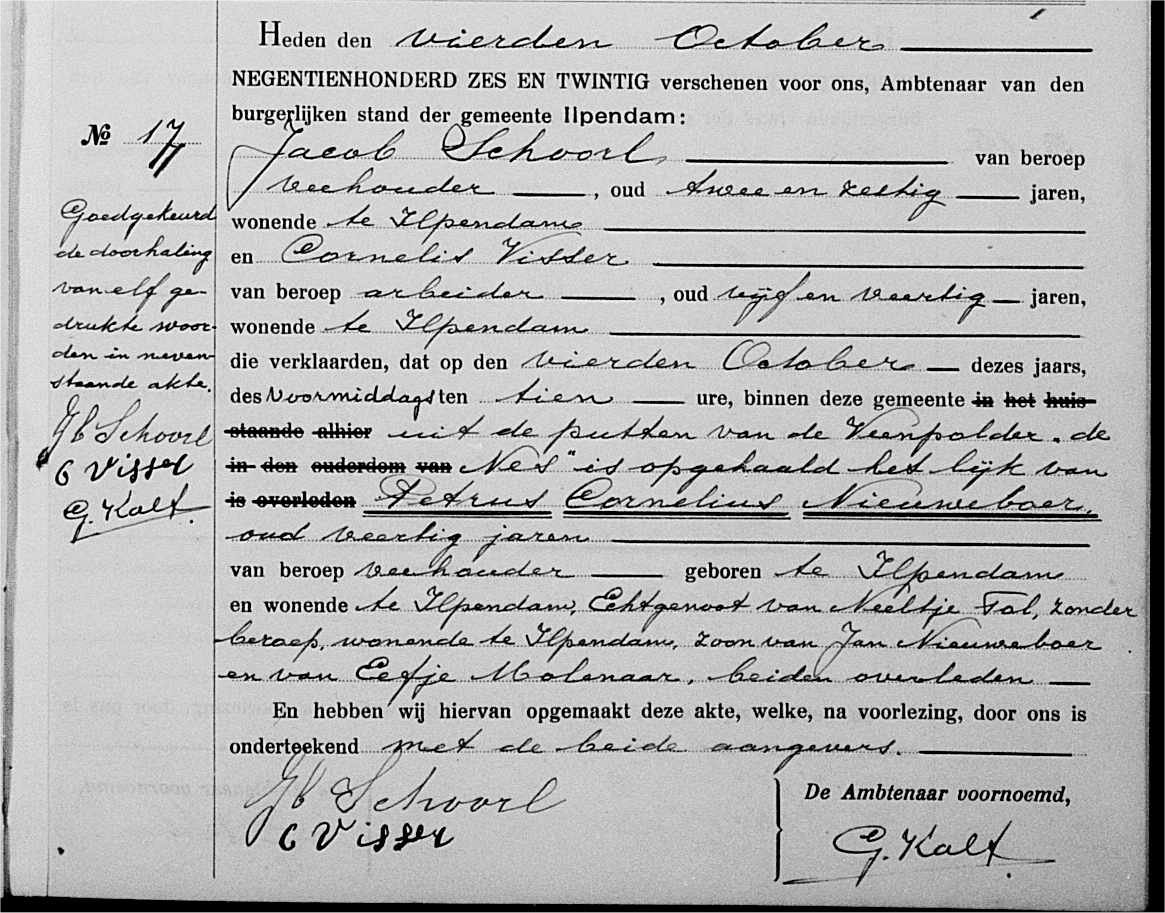 Heden den vierden October
NEGENTIENHONDERD ZES EN TWINTIG verschenen voor ons, Ambtenaar van den
burgerlijken stand der gemeente Ilpendam:
№ 17
Jacob Schoorl van beroep
veehouder, oud twee en zestig jaren,
wonende te Ilpendam
en Cornelis Visser
van beroep arbeider, oud vijf en veertig jaren,
wonende te Ilpendam
die verklaarden, dat op den vierden October dezes jaars,
des Voormiddags ten tien ure, binnen deze gemeente in het huis
staande alhier uit de putten van de Veenpolder „de
in den ouderdom van Nes" is opgehaald het lijk van
is overleden Petrus Cornelius Nieuweboer,
oud veertig jaren
van beroep veehouder geboren te Ilpendam
en wonende te Ilpendam, Echtgenoot van Neeltje Tol, zonder
beroep, wonende te Ilpendam, zoon van Jan Nieuweboer
en van Eefje Molenaar, beiden overleden
En hebben wij hiervan opgemaakt deze akte, welke, na voorlezing, door ons is
onderteekend met de beide aangevers.
Jb Schoorl
C Visser
De Ambtenaar voornoemd,
G. Kalt
Goedgekeurd
de doorhaling
van elf ge-
drukte woor-
den in neven-
staande akte.
Jb Schoorl
C Visser
G. Kalt